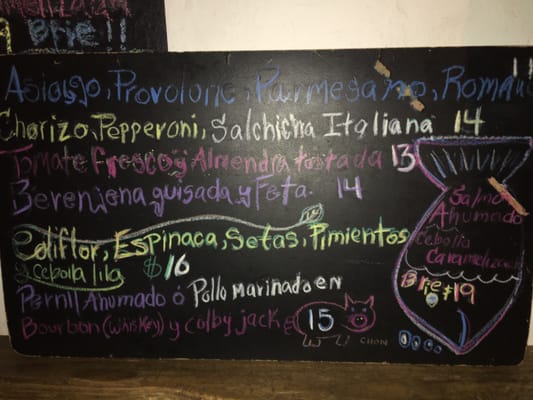 Brie!!
Asiago, Provolone, Parmesano, Romano
Chorizo, Pepperoni, Salchicha Italiana 14
Tomate Fresco y Almendra tostada 13
Berenjena guisada y Feta. 14
Coliflor, Espinaca, Setas, Pimientos
y Cebolla lila $16
Pernil Ahumado ó Pollo marinado en
Bourbon (Whiskey) y Colby jack 15
CHON
Salmón
Ahumado
Cebolla
Caramelizada
Brie $19